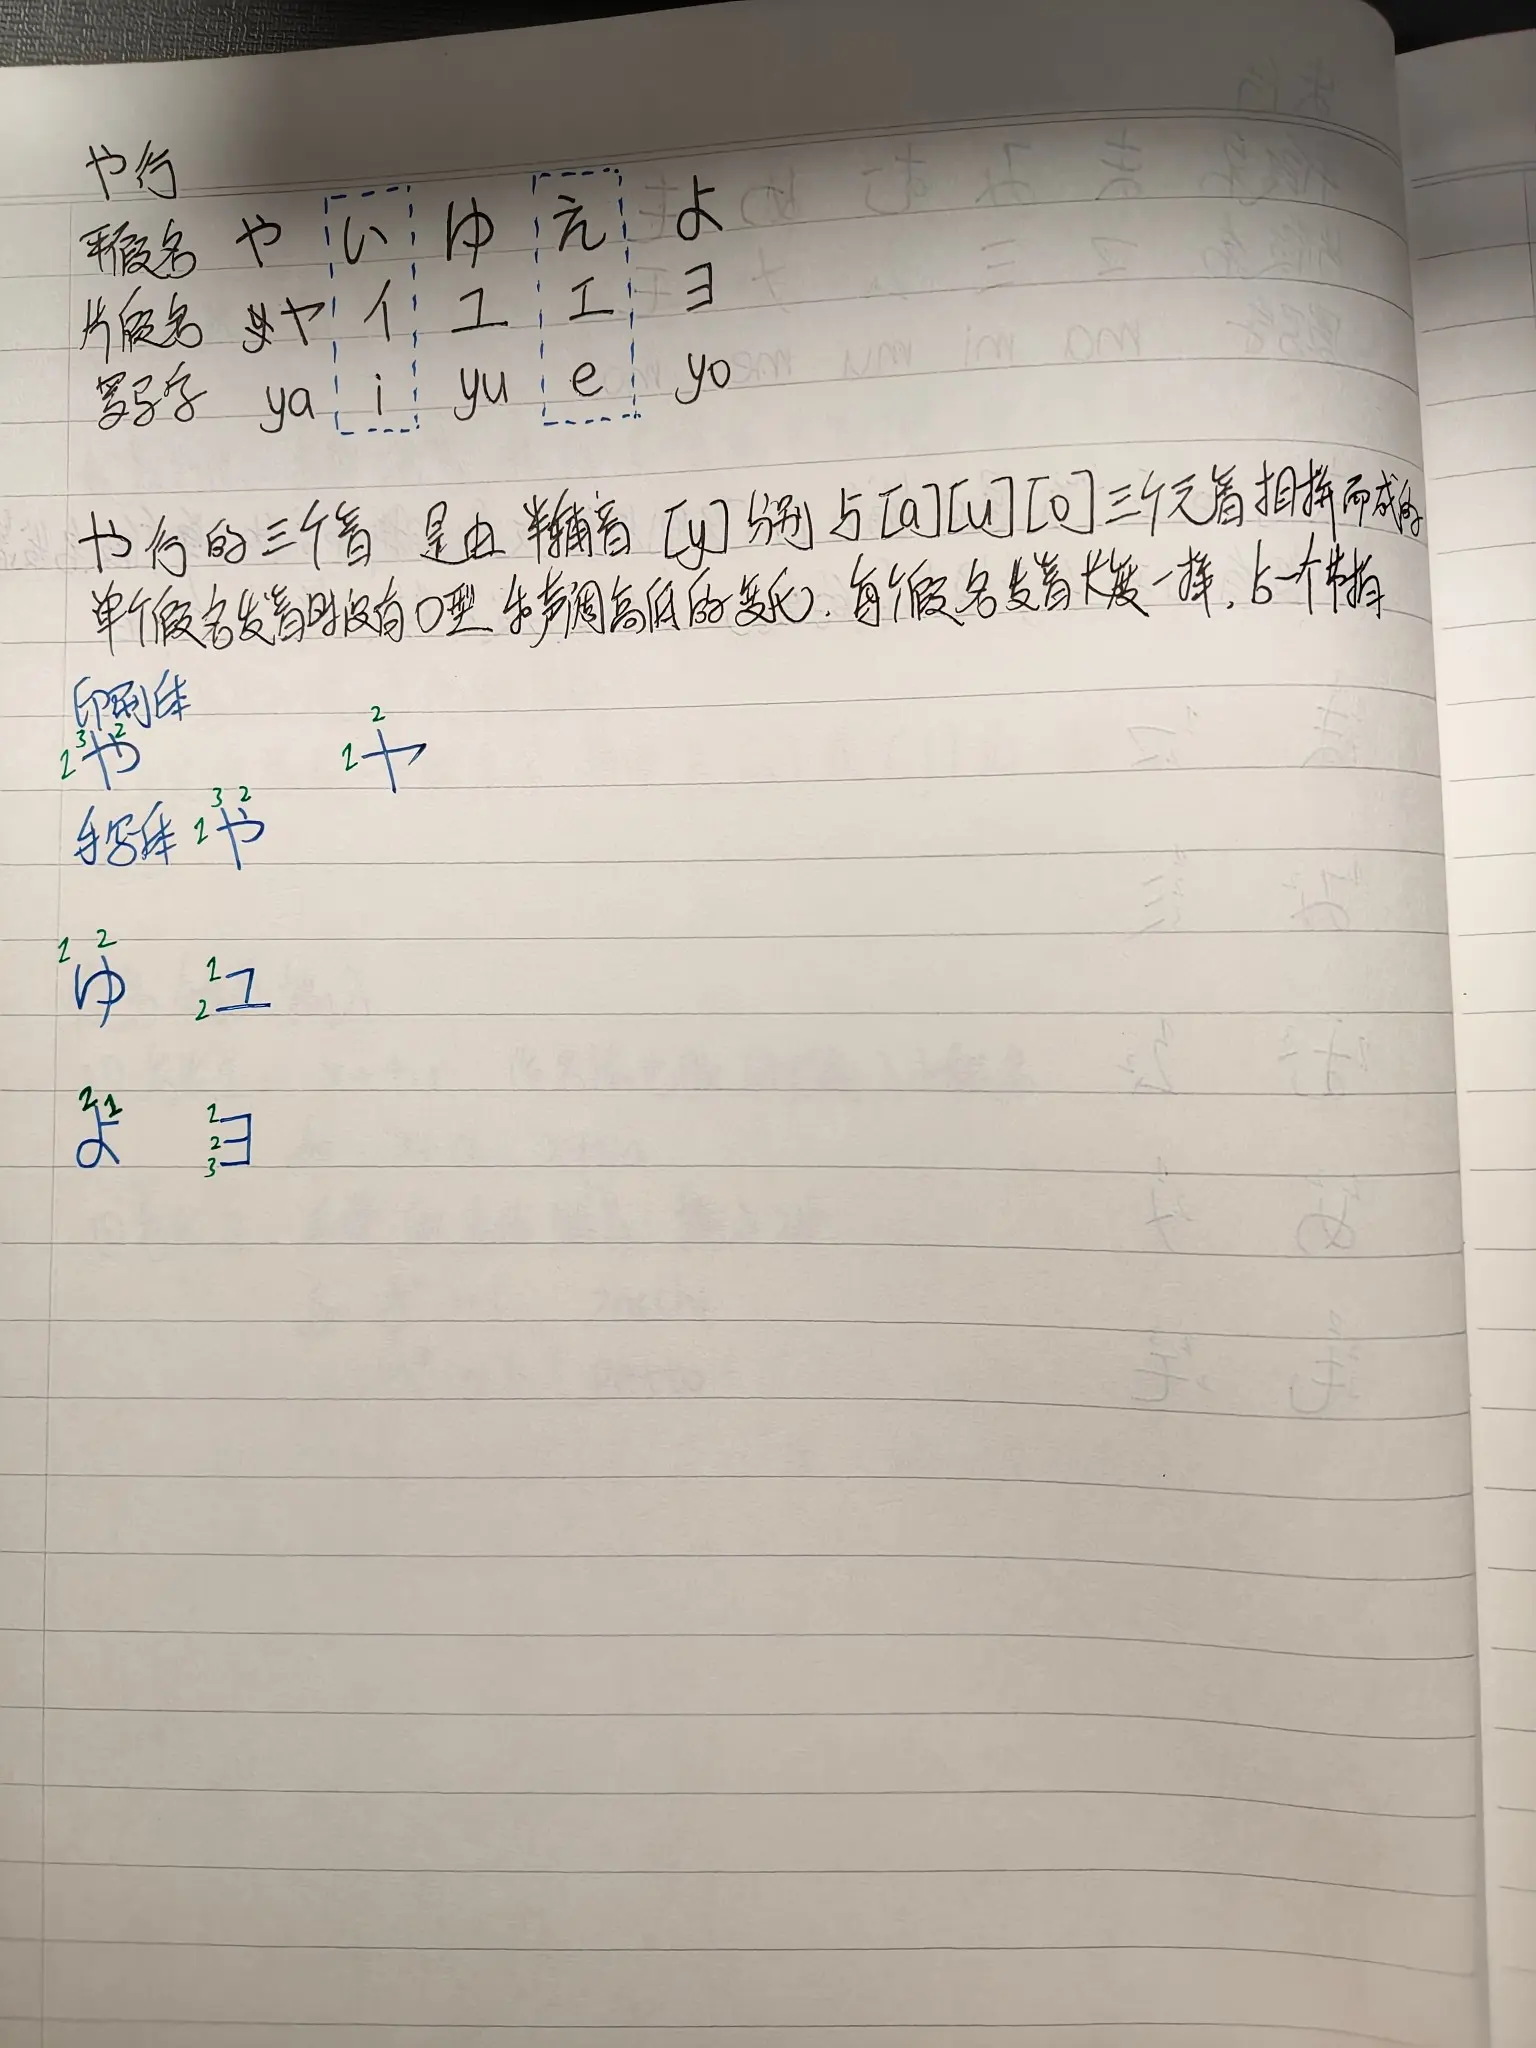 や行
平假名 や い ゆ え よ
片假名 ヤ イ ユ エ ヨ
罗马字 ya i yu e yo
や行的三个音 是由 半辅音 [y] 分别 与 [a][u][o] 三个元音 相拼而成的
单个假名发音时没有口型和声调高低的变化. 每个假名发音长度一样, 占一个节拍
印刷体
1 3 2 や 1 2 ヤ
手写体 1 3 2 や
1 2 ゆ 1 2 ユ
2 1 よ 1 2 3 ヨ